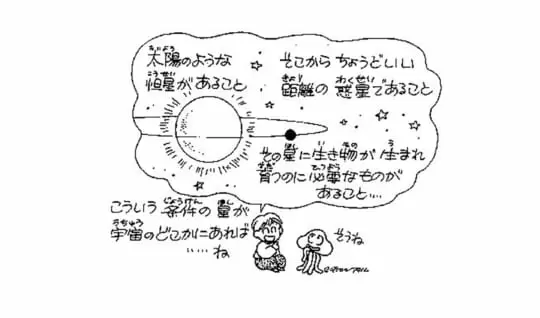 太陽のような
恒星があること
そこから ちょうどいい
距離の 惑星であること
その星に生き物が 生まれ
育つのに必要なものが
あること…
こういう 条件の 星が
宇宙のどこかにあれば
……ね
そうね